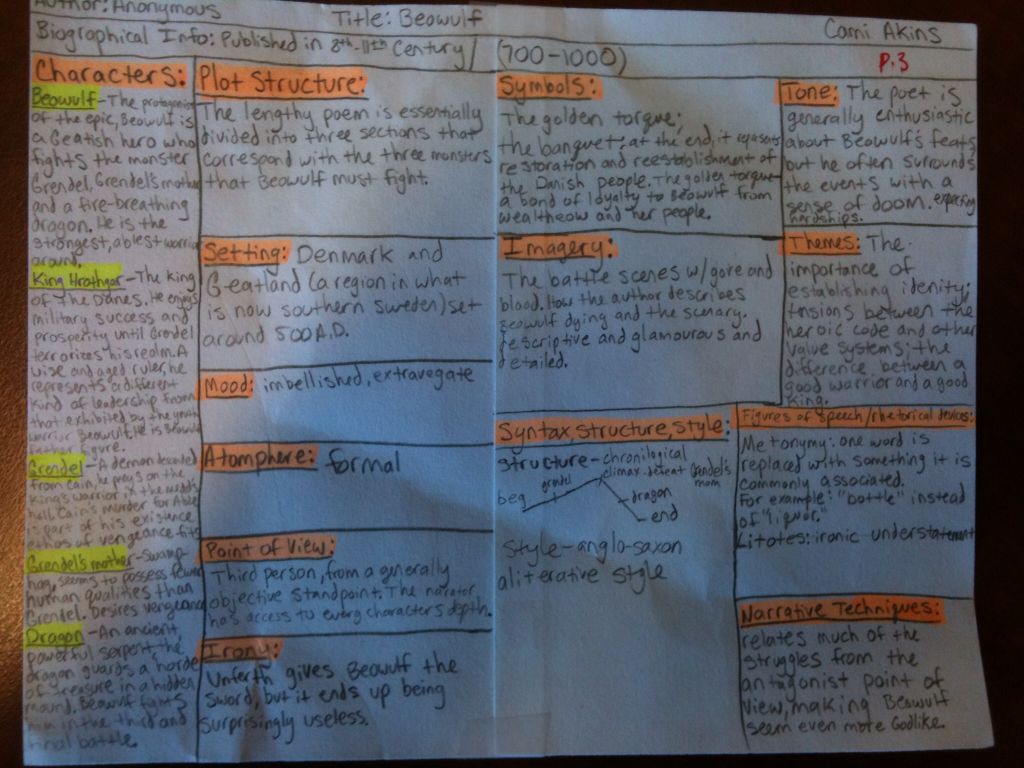 Author: Anonymous
Title: Beowulf
Cami Akins
Biographical Info: Published in 8th-11th Century (700-1000)
P.3
Characters:
Beowulf - The protagonist
of the epic, Beowulf is
a Geatish hero who
fights the monster
Grendel, Grendel's mother
and a fire-breathing
dragon. He is the
strongest, ablest warrior
around.
King Hrothgar - The king
of The Danes. He enjoys
military success and
prosperity until Grendel
terrorizes his realm. A
wise and aged ruler, he
represents a different
kind of leadership from
that exhibited by the youth
warrior Beowulf. He is Beowulf
father figure.
Grendel - A demon
from Cain, he preys on the
King's warrior in the
hall. Cain's murder for Able
is part of his existence
ethos of vengeance fits
Grendel's mother - swamp-
hag, seems to possess fewer
human qualities than
Grendel. Desires vengeance
Dragon - An ancient,
powerful serpent, the
dragon guards a horde
of treasure in a hidden
mound. Beowulf fights
him in the third and
final battle.
Plot Structure:
The lengthy poem is essentially
divided into three sections that
correspond with the three monsters
that Beowulf must fight.
Setting: Denmark and
Geatland (a region in what
is now southern Sweden) set
around 500 A.D.
Mood: imbellished, extravegate
Atomphere: formal
Point of View:
Third person, from a generally
objective standpoint. The narator
has access to every characters depth.
Irony:
Unferth gives Beowulf the
sword, but it ends up being
surprisingly useless.
Symbols:
The golden torque;
the banquet; at the end, it represents
restoration and reestablishment of
the Danish people. The golden torque-
a bond of loyalty to Beowulf from
wealtheow and her people.
Imagery:
The battle scenes w/gore and
blood. How the author describes
Beowulf dying and the scenary.
descriptive and glamourous and
detailed.
Syntax, structure, style:
structure - chronilogical
climax defeat Grendel's
mom
grendel
beg
dragon
end
style - anglo-saxon
aliterative style
Tone: The poet is
generally enthusiastic
about Beowulf's feats,
but he often surrounds
the events with a
sense of doom. expecting
hardships.
Themes: The
importance of
establishing idenity;
tensions between the
heroic code and other
value systems; the
difference between a
good warrior and a good
king.
Figures of speech/rhetorical devices:
Metonymy: one word is
replaced with something it is
commonly associated.
For example: "bottle" instead
of "liquor."
Litotes: ironic understatement
Narrative Techniques:
relates much of the
struggles from the
antagonist point of
view, making Beowulf
seem even more Godlike.